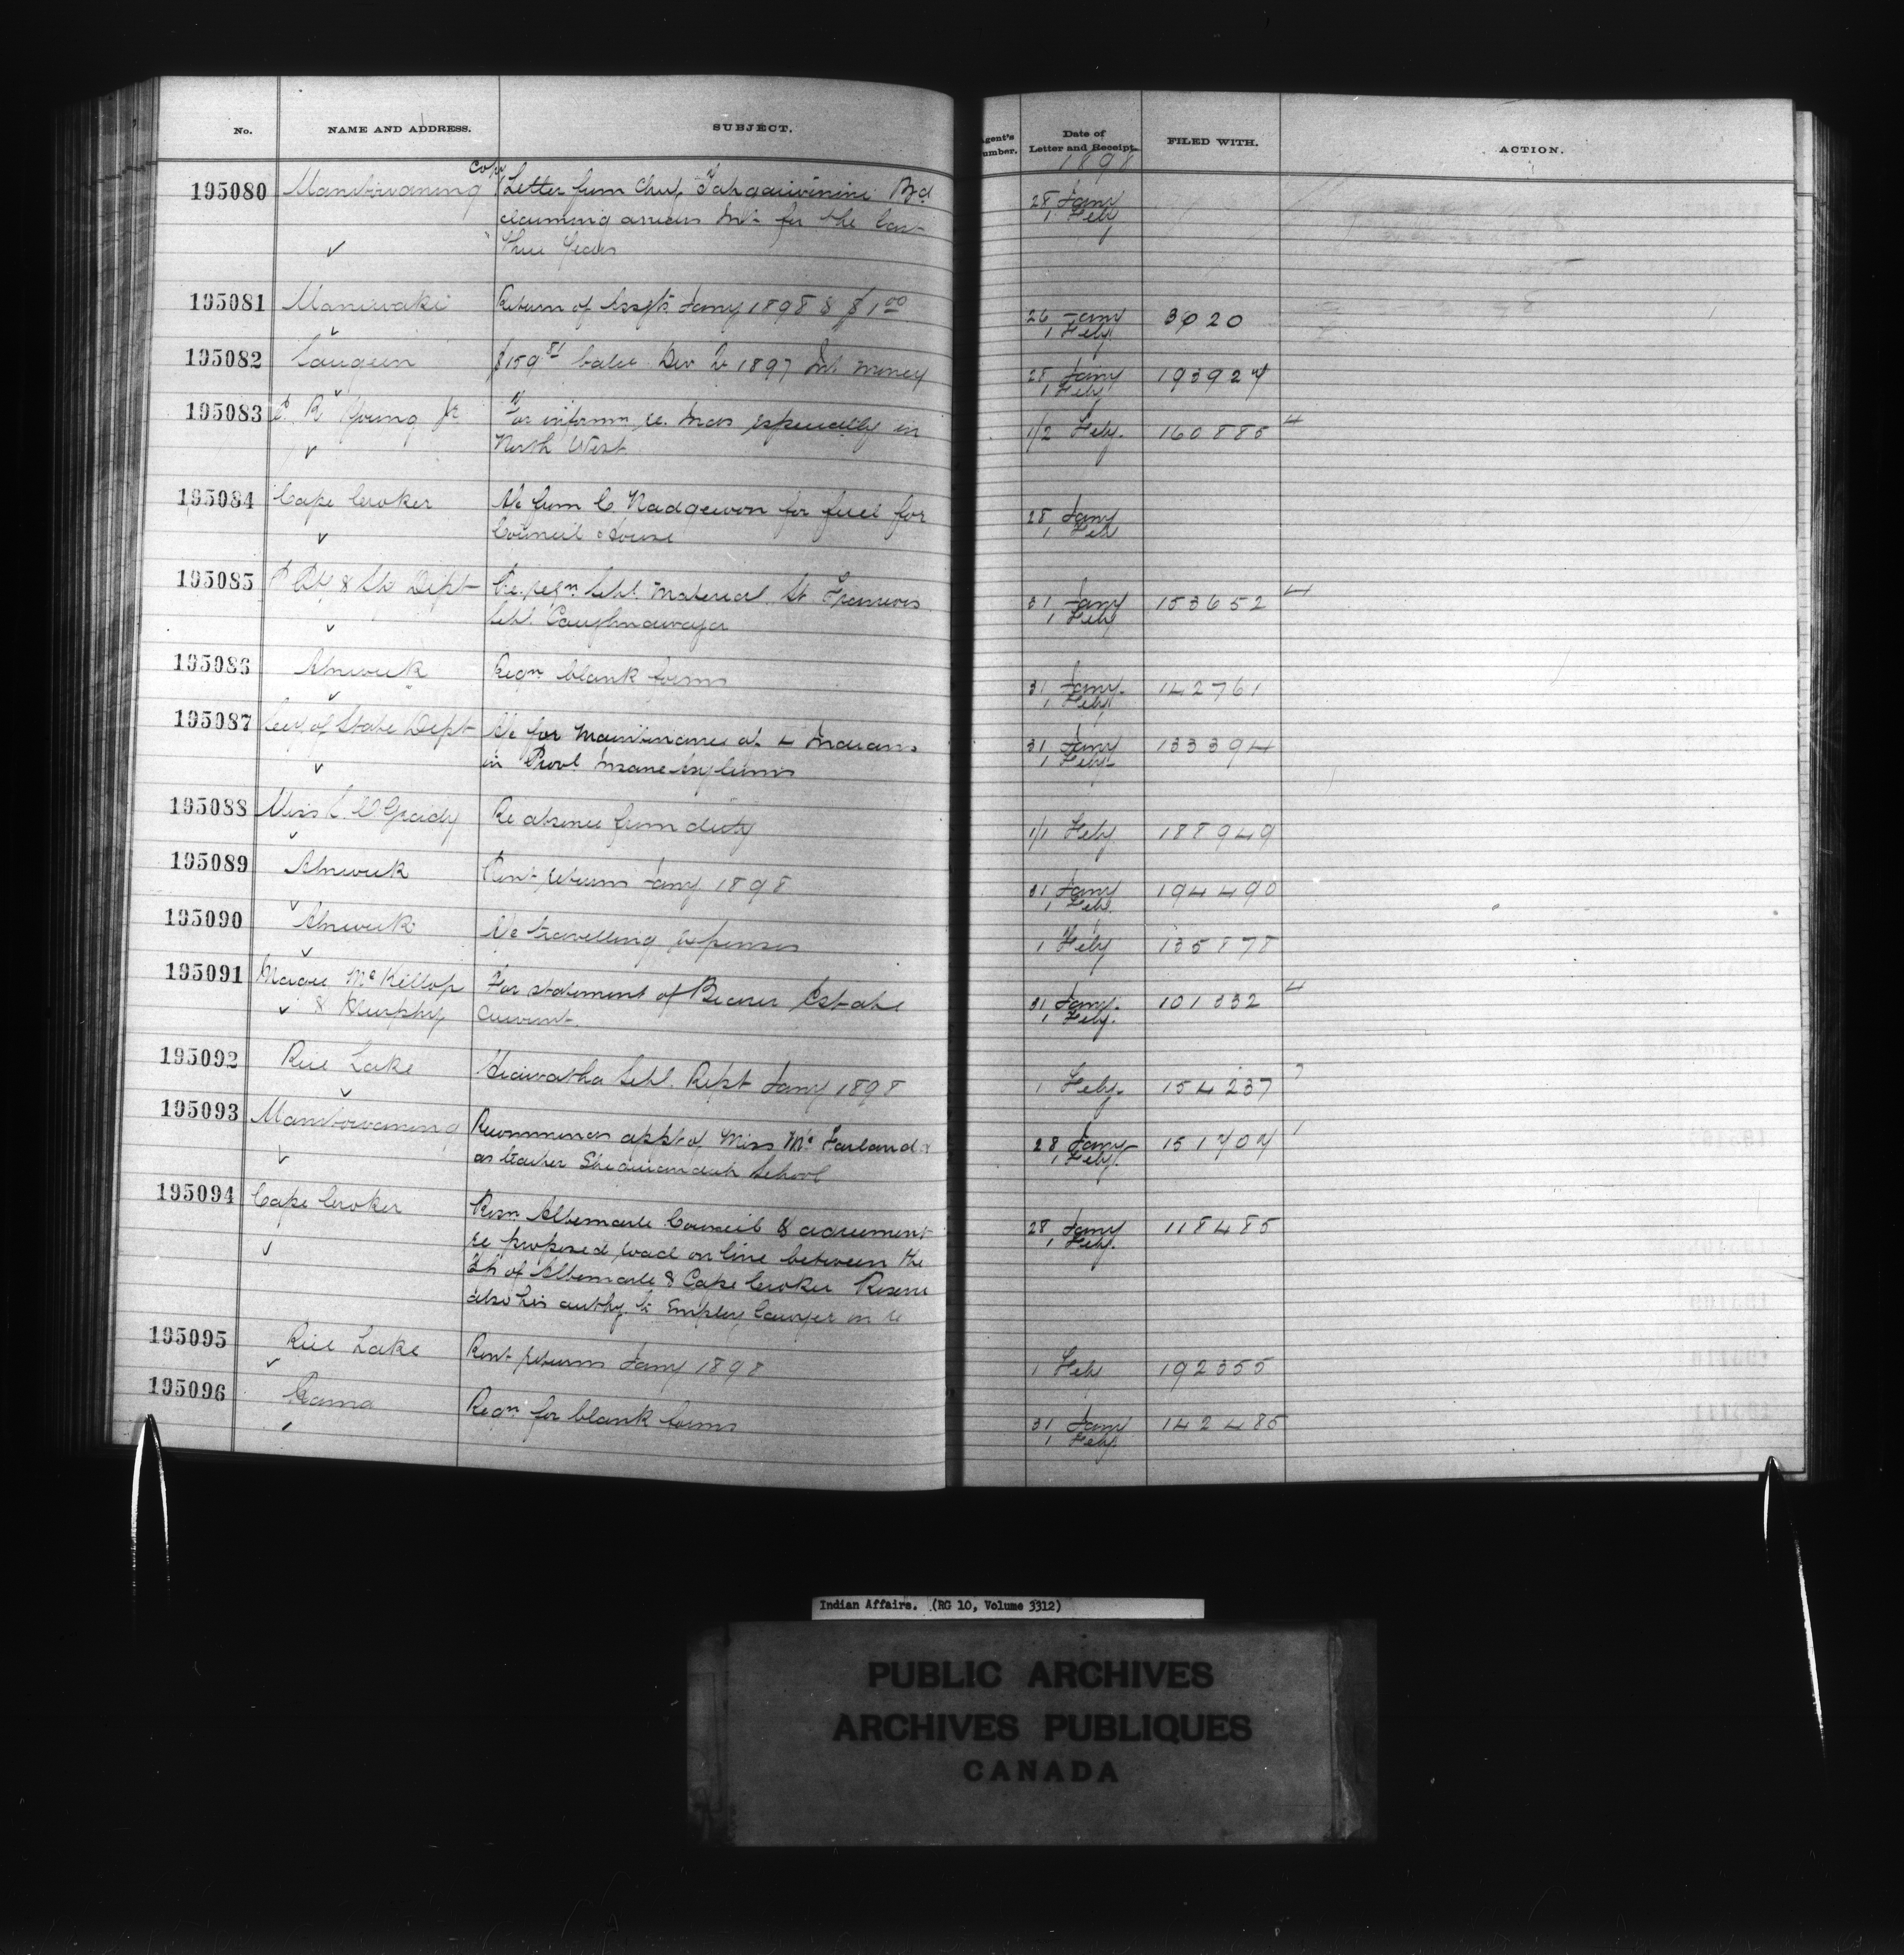 No. NAME AND ADDRESS. SUBJECT. Agent's Number. Date of Letter and Receipt. FILED WITH. ACTION.
1898
195080 Manitowaning Copy Letter from Chief Bd 28 Jany
claiming arrears Int for the last 1 Feby
three years
195081 Maniwaki Return of Jany 1898 & $1.00 26 Jany 3020
1 Feby
195082 Saugeen $159.81 balce Dec 1897 Int money 28 Jany 193924
1 Feby
195083 C. R. Young Jr For inform re. Inds especially in 1/2 Feby. 160885 4
North West
195084 Cape Croker A/c from C. Nadgewon for fuel for 28 Jany
Council House 1 Feb
195085 P Pty & Sty Dept Re reqn Schl. Material St Francois 31 Jany 153652 4
Schl. Caughnawaga 1 Feby
195086 Alnwick Reqn blank forms 31 Jany. 142761
1 Feby
195087 Secy of State Dept A/c for Maintenance of Indians 31 Jany 133394
in Provl Insane Asylums 1 Feby
195088 Miss O'Grady Re absence from duty 1/1 Feby 188949
195089 Alnwick Rent returns Jany 1898 31 Jany 194490
1 Feb.
195090 Alnwick A/c travelling expenses 1 Feby 135878
195091 McKillop For statement of Estate 31 Jany. 101332 4
& Murphy current. 1 Feby.
195092 Rice Lake Hiawatha Schl. Rept Jany 1898 1 Feby. 154237 7
195093 Manitowaning Recommends appt of Miss McFarland 28 Jany 151404 1
as teacher Sheguiandah School 1 Feby.
195094 Cape Croker Resn. Albemarle Council & agreement 28 Jany 118485
re proposed road on line between the 1 Feby.
Tp of Albemarle & Cape Croker Reserve
also his authy. to Employ Lawyer in re
195095 Rice Lake Rent returns Jany 1898 1 Feby 192355
195096 Rama Reqn. for blank forms 31 Jany 142485
1 Feby
Indian Affairs. (RG 10, Volume 3312)
PUBLIC ARCHIVES
ARCHIVES PUBLIQUES
CANADA